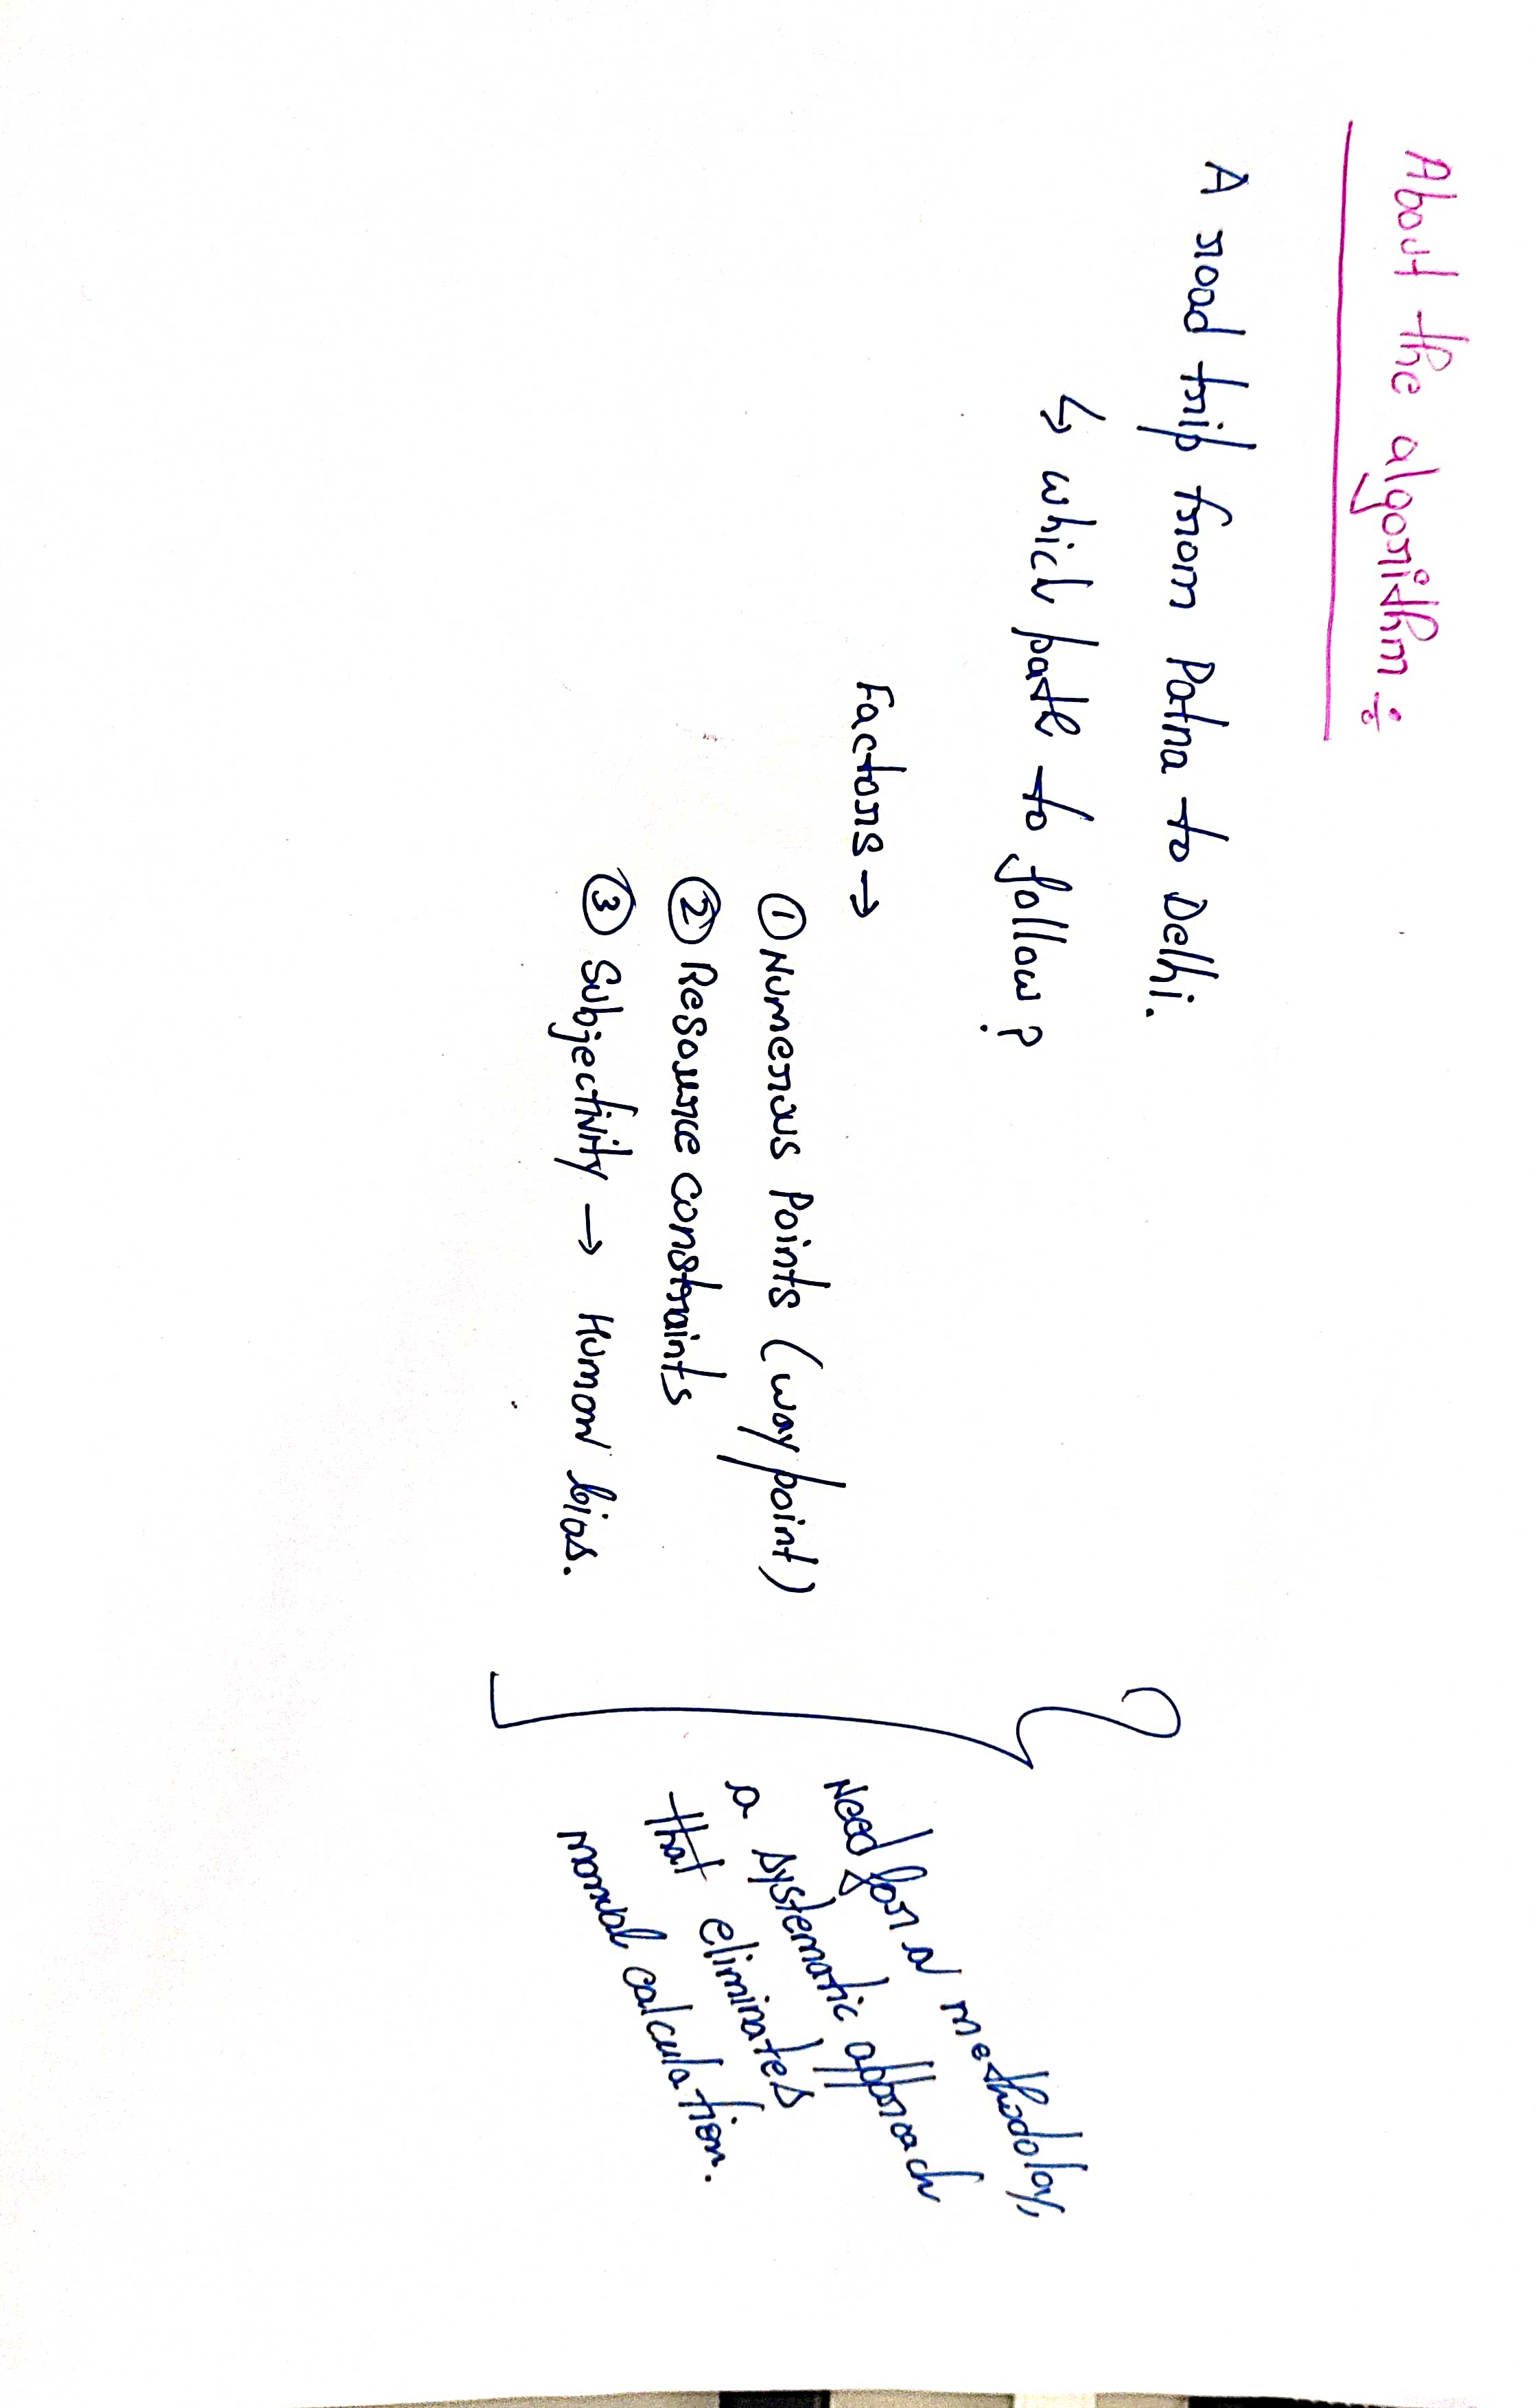 About the algorithm :-
A road trip from Patna to Delhi.
↳ which path to follow?
Factors →
① Numerous Points (way point)
② Resource constraints
③ Subjectivity → Human bias.
Need for a methodology,
a systematic approach
that eliminates
manual calculation.